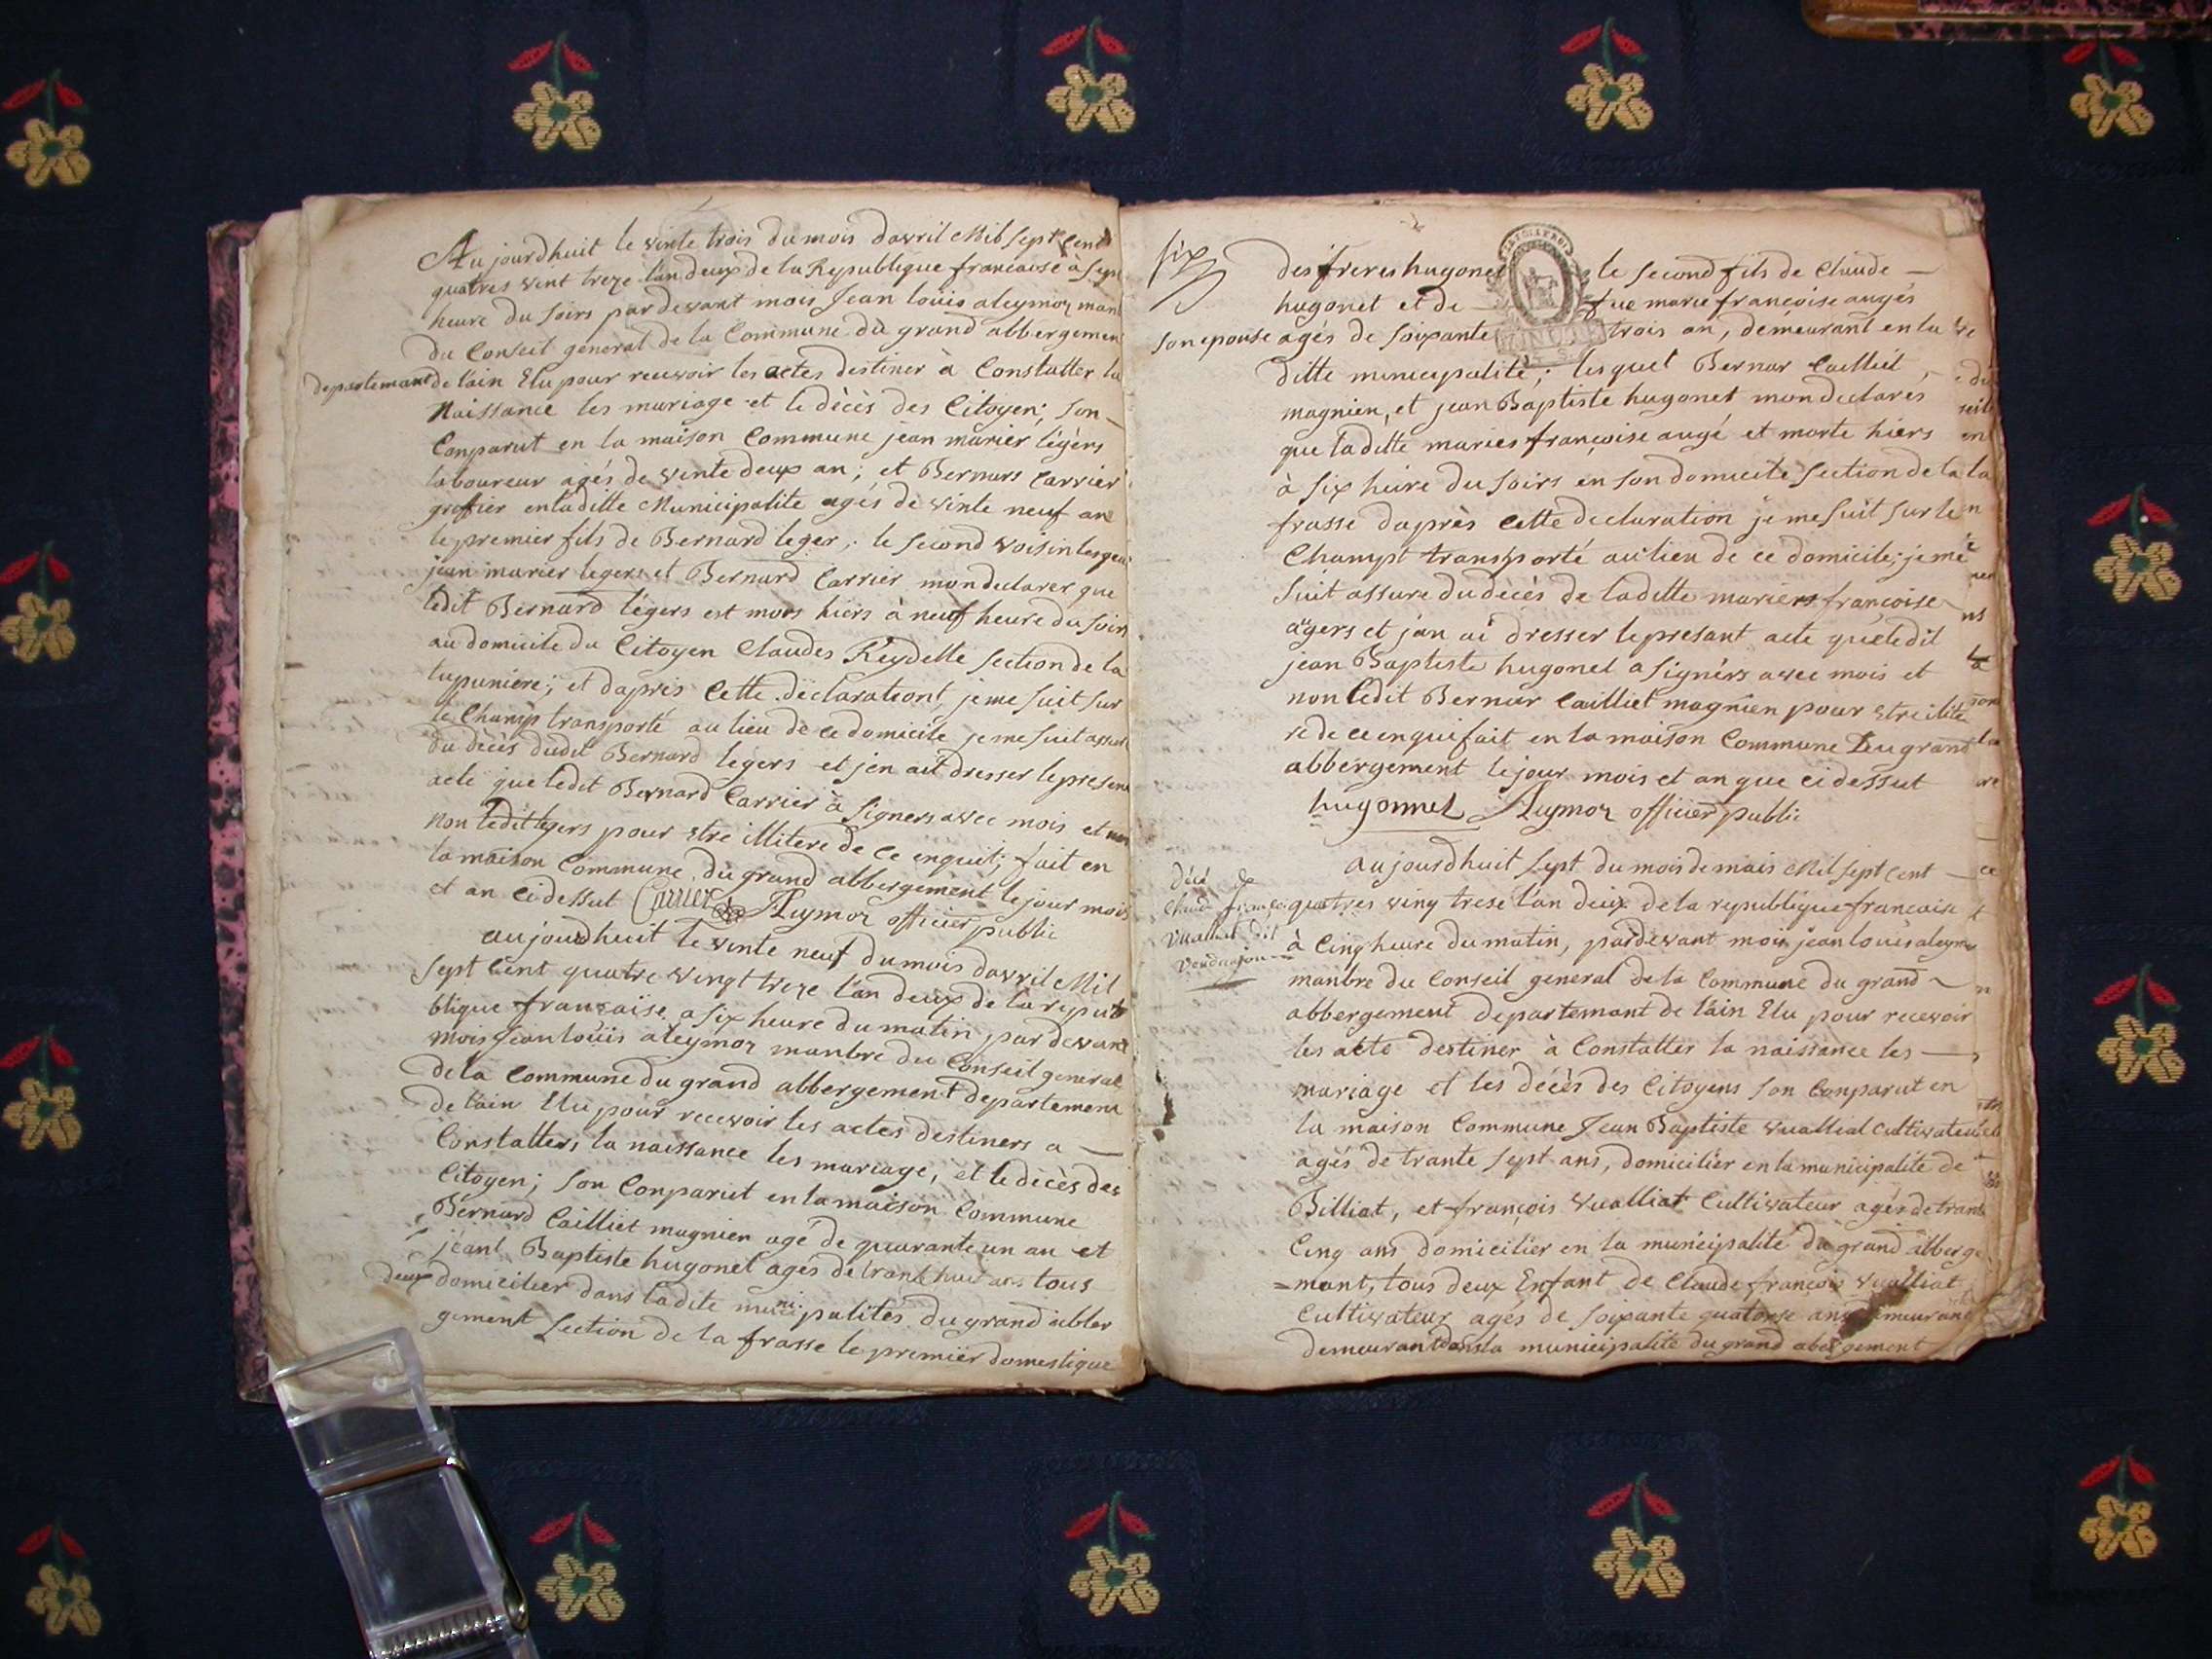 Aujourdhuit le vinte trois du mois davril Mil sept Cent
quatres vint treze lan deux de la Republique francaise à sept
heure du soirs par devant mois Jean louis aleymoz manb
du Conseil general de la Commune du grand abbergement
departemant de lain Elu pour recevoir les actes destiner à Constatter la
Naissance les mariage et le décès des Citoyen; son
Conparut en la maison Commune jean marier légèrs
laboureur agés de vinte deux an; et Bernars Carrier
grefier en laditte Municipalite agés de vinte neuf an
le premier fils de Bernard leger; le second voisin lesquel
jean marier legers et Bernard Carrier mon declarer que
ledit Bernard légers est mors hiers à neuf heure du soirs
au domicile du Citoyen Claudes Reydelle section de la
lupuniere; et daprès Cette déclarationt, je me suit sur
le Champ transporté au lieu de ce domicile je me suit assur
du dècès dudit Bernard legers et jen ait dresser le presen
acte que ledit Bernard Carrier à signers avec mois et non
non ledit legers pour etre illitere de ce enquit; fait en
la maison Commune du grand abbergement le jour mois
et an cidessut Carrier Aleymoz officier public
aujourdhuit le vinte neuf du mois davril Mil
sept Cent quatre vingt treze lan deux de la repu
blique francaise, a six heure du matin par devant
mois Jean louis aleymoz manbre du Conseil general
de la Commune du grand abbergement departement
de lain Elu pour recevoir les actes destiners a
Constatters la naissance les mariage, et le décès des
Citoyen; son Conparut en la maison Commune
Bernard Cailliet magnien agé de quarante un an et
jeant Baptiste hugonet agés de trant huit ans tous
deux domicilier dans ladite municipalités du grand abber
gement section de la frasse le premier domestique
six
des freres hugonet le second fils de Claude
hugonet et de fue marie francoise augés
son epouse agés de soixante trois an, demeurant en la
ditte municipalité; lesquel Bernar Cailliet
magnien, et jean Baptiste hugonet mon declarés
que laditte maries françoise augé et morte hiers
à six heire du soirs en son domicile section de la
frasse daprès cette declaration je me suit sur le
Champt transporté au lieu de ce domicile; je me
suit assure du dècès de laditte mariers francoise
agers et jan ai dresser le presant acte que ledit
jean Baptiste hugonet a signérs avec mois et
non ledit Bernar Cailliet magnien pour etre ilite
re de ce enqui fait en la maison Commune du grand
abbergement le jour mois et an que cidessut
hugonnet Aleymoz officier public
aujourdhuit sept du mois de mais Mil sept Cent
Décè de
Claude françoi
Vuallliat dit
quatres ving trese lan deux de la republique francaise
à Cinq heure du matin, par devant mois jean louis aleymo
manbre du Conseil general de la Commune du grand
abbergement departemant de lain Elu pour recevoir
les acte destiner à Constatter la naissance les
mariage et les décès des Citoyens son Conparut en
la maison Commune Jean Baptiste vualliat Cultivateur
agés de trante sept ans, domicilier en la municipalite de
Billiat, et françois Vualliat Cultivateur agés de trante
Cinq ans domicilier en la municipalité du grand abberge
=mant, tous deux Enfant de Claude françois Vualliat
Cultivateur agés de soixante quatorse ans demeurant
demeurant dans la municipalité du grand abergement